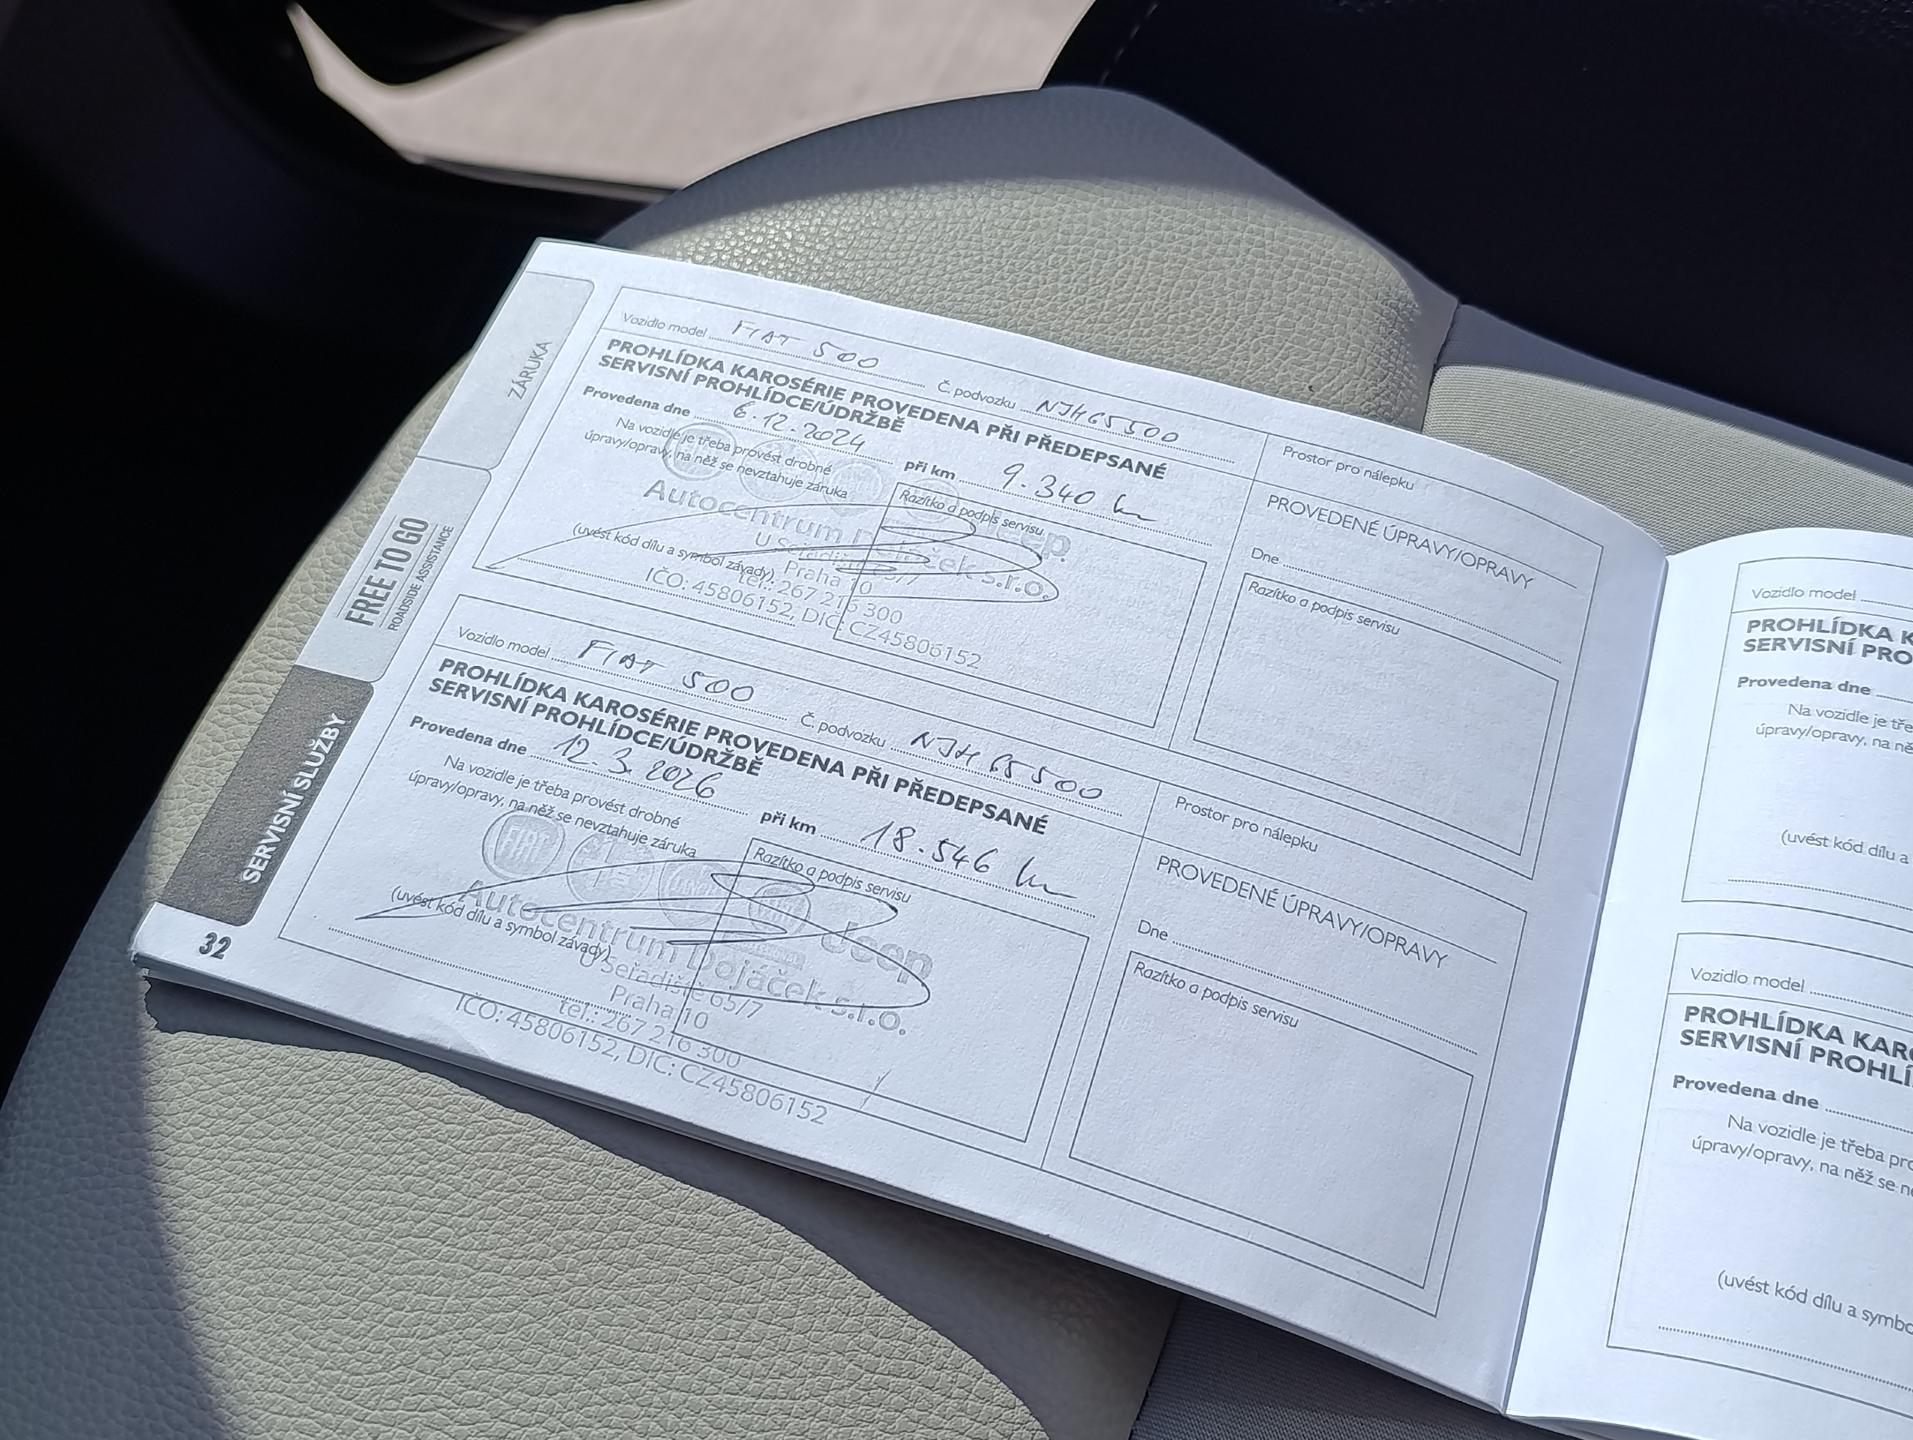 ZÁRUKA
FREE TO GO
ROADSIDE ASSISTANCE
SERVISNÍ SLUŽBY
32
Vozidlo model FIAT 500
Č. podvozku NJH65500
PROHLÍDKA KAROSÉRIE PROVEDENA PŘI PŘEDEPSANÉ
SERVISNÍ PROHLÍDCE/ÚDRŽBĚ
Provedena dne 6.12.2024
při km 9.340 km
Na vozidle je třeba provést drobné
úpravy/opravy, na něž se nevztahuje záruka
Razítko a podpis servisu
(uvést kód dílu a symbol závady)
Jeep
Autocentrum Dojáček s.r.o.
U Seřadiště 65/7
Praha 10
tel.: 267 216 300
IČO: 45806152, DIČ: CZ45806152
Prostor pro nálepku
PROVEDENÉ ÚPRAVY/OPRAVY
Dne
Razítko a podpis servisu
Vozidlo model FIAT 500
Č. podvozku NJH65500
PROHLÍDKA KAROSÉRIE PROVEDENA PŘI PŘEDEPSANÉ
SERVISNÍ PROHLÍDCE/ÚDRŽBĚ
Provedena dne 12.3.2026
při km 18.546 km
Na vozidle je třeba provést drobné
úpravy/opravy, na něž se nevztahuje záruka
Razítko a podpis servisu
(uvést kód dílu a symbol závady)
FIAT
Jeep
Autocentrum Dojáček s.r.o.
U Seřadiště 65/7
Praha 10
tel.: 267 216 300
IČO: 45806152, DIČ: CZ45806152
Prostor pro nálepku
PROVEDENÉ ÚPRAVY/OPRAVY
Dne
Razítko a podpis servisu
Vozidlo model
PROHLÍDKA K
SERVISNÍ PRO
Provedena dne
Na vozidle je tře
úpravy/opravy, na ně
(uvést kód dílu a
Vozidlo model
PROHLÍDKA KARO
SERVISNÍ PROHLÍ
Provedena dne
Na vozidle je třeba pro
úpravy/opravy, na něž se ne
(uvést kód dílu a symbo